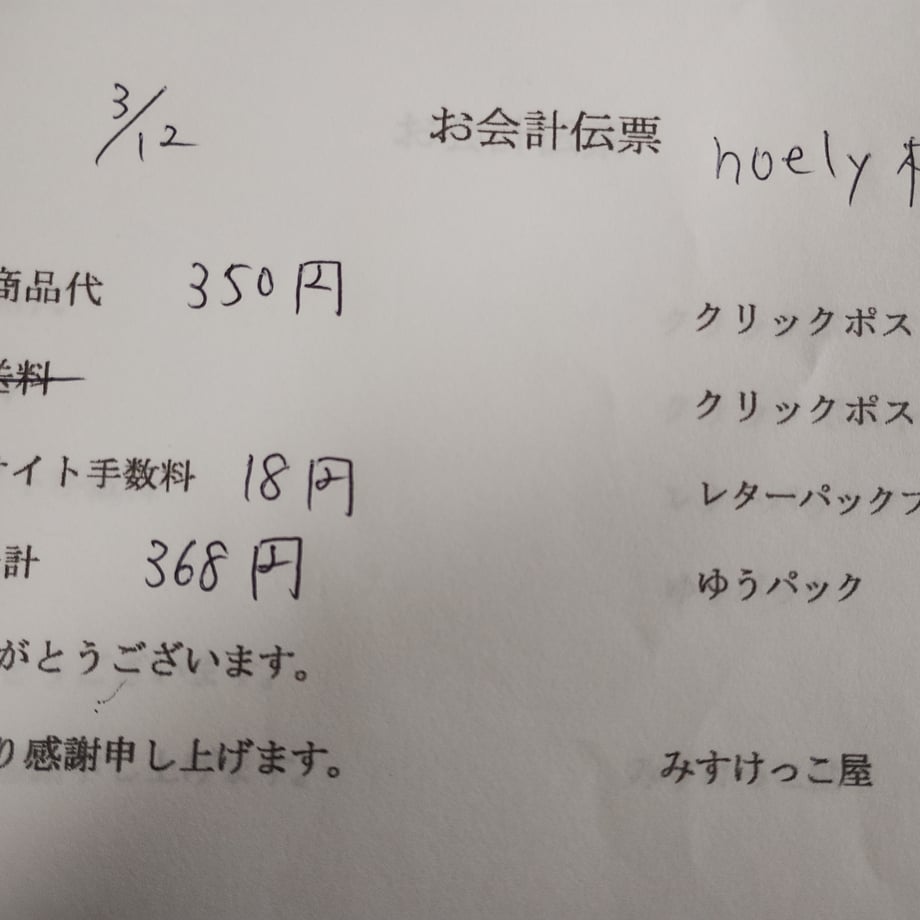 3/12
お会計伝票
noely 様
商品代 350円
送料
サイト手数料 18円
計 368円
がとうございます。
り感謝申し上げます。
クリックポス
クリックポス
レターパックプ
ゆうパック
みすけっこ屋